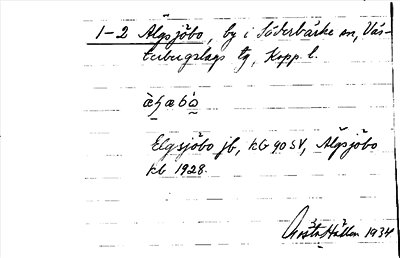 1-2 Älgsjöbo, by i Söderbärke sn, Väs-
terbergslags tg, Kopp. l.
Elgsjöbo jb, kb 90 SV, Älgsjöbo
kb 1928.
Gösta Hallén 1934